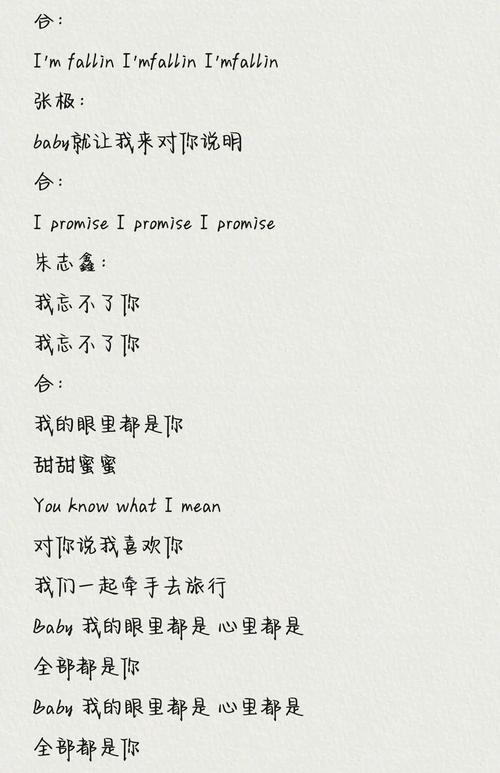 合：
I'm fallin I'mfallin I'mfallin
张极：
baby就让我来对你说明
合：
I promise I promise I promise
朱志鑫：
我忘不了你
我忘不了你
合：
我的眼里都是你
甜甜蜜蜜
You know what I mean
对你说我喜欢你
我们一起牵手去旅行
Baby 我的眼里都是 心里都是
全部都是你
Baby 我的眼里都是 心里都是
全部都是你